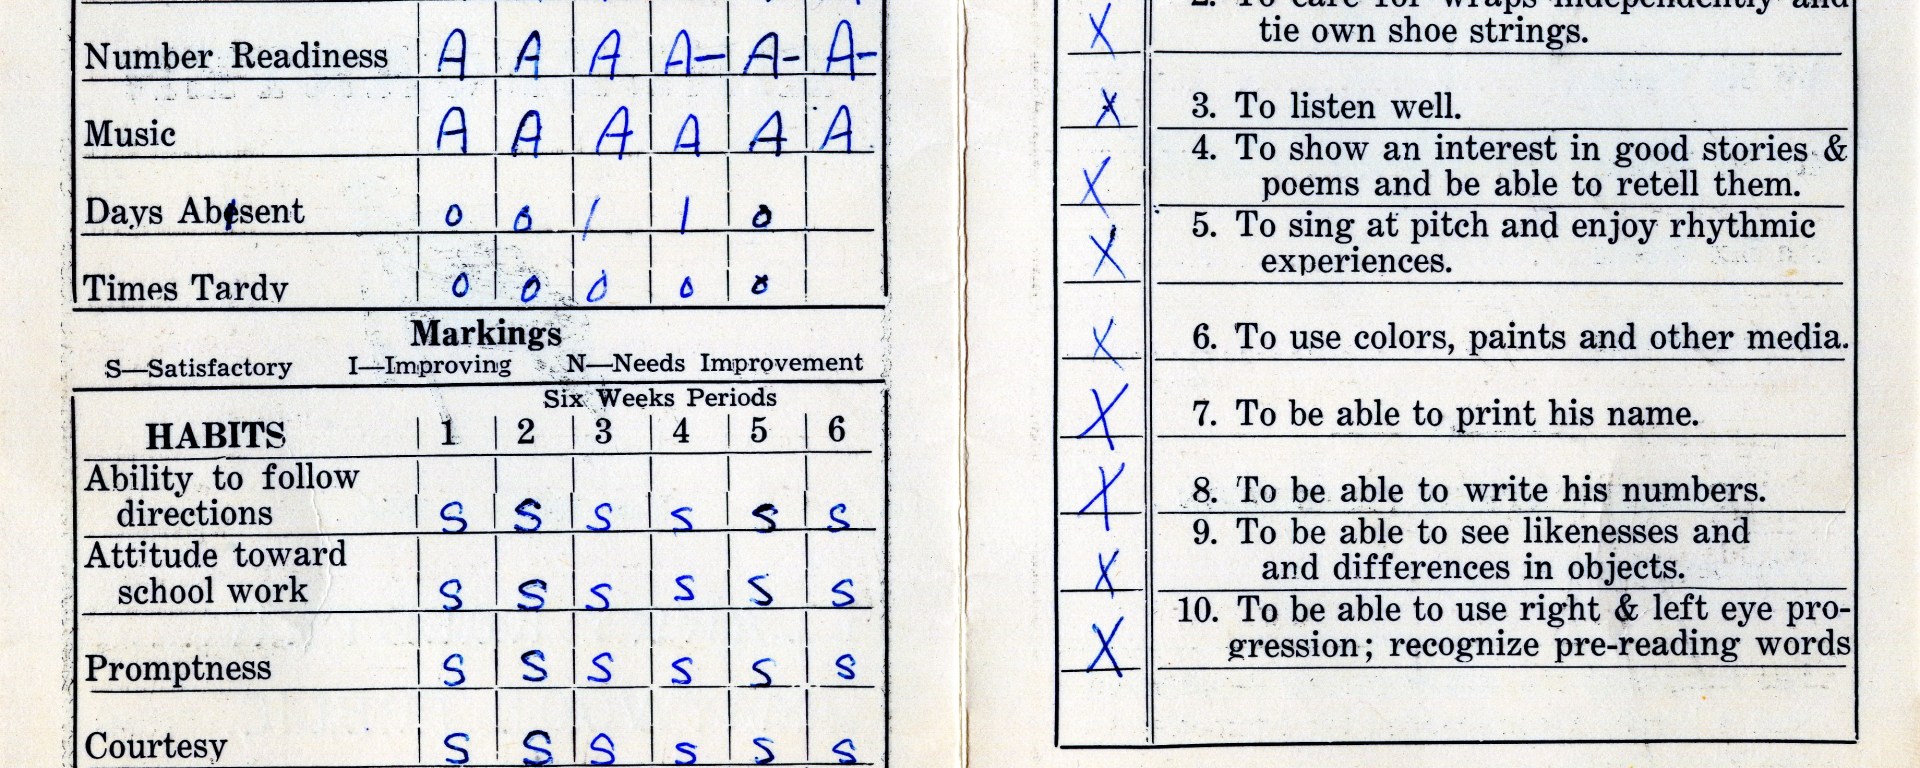 Number Readiness A A A A- A- A-
Music A A A A A A
Days Abesent 0 0 1 1 0
Times Tardy 0 0 0 0 0
Markings
S—Satisfactory I—Improving N—Needs Improvement
Six Weeks Periods
HABITS 1 2 3 4 5 6
Ability to follow
directions S S S S S S
Attitude toward
school work S S S S S S
Promptness S S S S S S
Courtesy S S S S S S
2. To care for wraps independently and
X tie own shoe strings.
X 3. To listen well.
4. To show an interest in good stories &
X poems and be able to retell them.
5. To sing at pitch and enjoy rhythmic
X experiences.
X 6. To use colors, paints and other media.
X 7. To be able to print his name.
X 8. To be able to write his numbers.
9. To be able to see likenesses and
X and differences in objects.
10. To be able to use right & left eye pro-
X gression; recognize pre-reading words